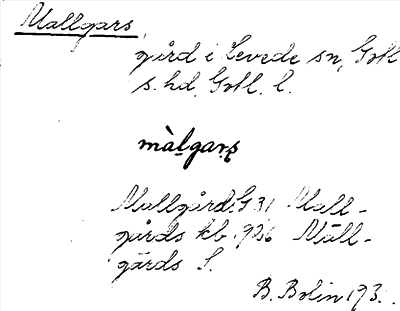 Mallgars,
gård i Levede sn, Gotl
s. hd, Gotl. l.
màlgaṛṣ
Mallgårds G 31 Mall-
gårds kb 1926 Mall-
gårds S.
B. Bolin 193.